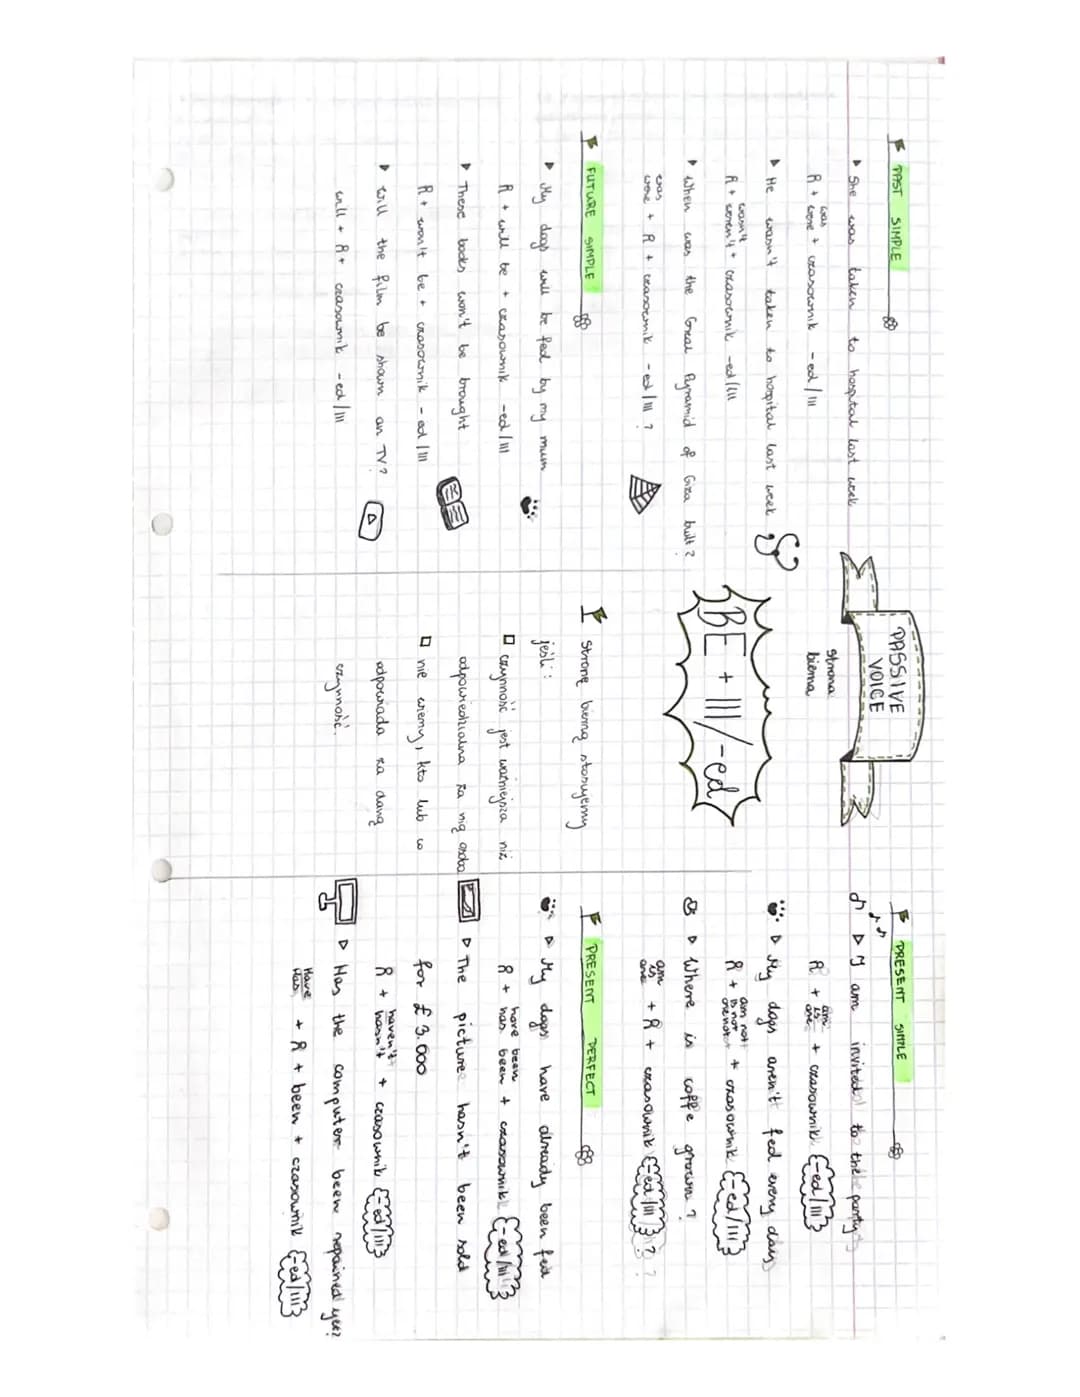 PAST SIMPLE
▶ She was taken to hospital last week
was
R + were + czasownik -ed/III
▶ He wasn't taken to hospital last week
wasn't
R + weren't + czasownik -ed/III
▶ When was the Great Pyramid of Giza built?
was
were + R + czasownik -ed/III ?
FUTURE SIMPLE
▶ My dogs will be fed by my mum
R + will be + czasownik -ed/III
▶ These books won't be brought
R + won't be + czasownik -ed/III
▶ Will the film be shown on TV?
will + R + czasownik -ed/III
PASSIVE
VOICE
strona
bierna
BE + III/-ed
Stronę bierną stosujemy
jeśli:
□ czynność jest ważniejsza niż
odpowiedzialna za nią osoba
□ nie wiemy, kto lub co
odpowiada za daną
czynność.
PRESENT SIMPLE
▷ I am invited to the party
am
is
R + are + czasownik (-ed/III)
▷ My dogs aren't fed every day
am not
is not
R + are not + czasownik (-ed/III)
▷ Where is coffe grown?
am
is
are + R + czasownik (-ed/III) ?
PRESENT PERFECT
▷ My dogs have already been fed
have been
R + has been + czasownik (-ed/III)
▷ The picture hasn't been sold
for £ 3.000
haven't
R + hasn't + czasownik (-ed/III)
▷ Has the computer been repained yet?
Have
Has + R + been + czasownik (-ed/III)